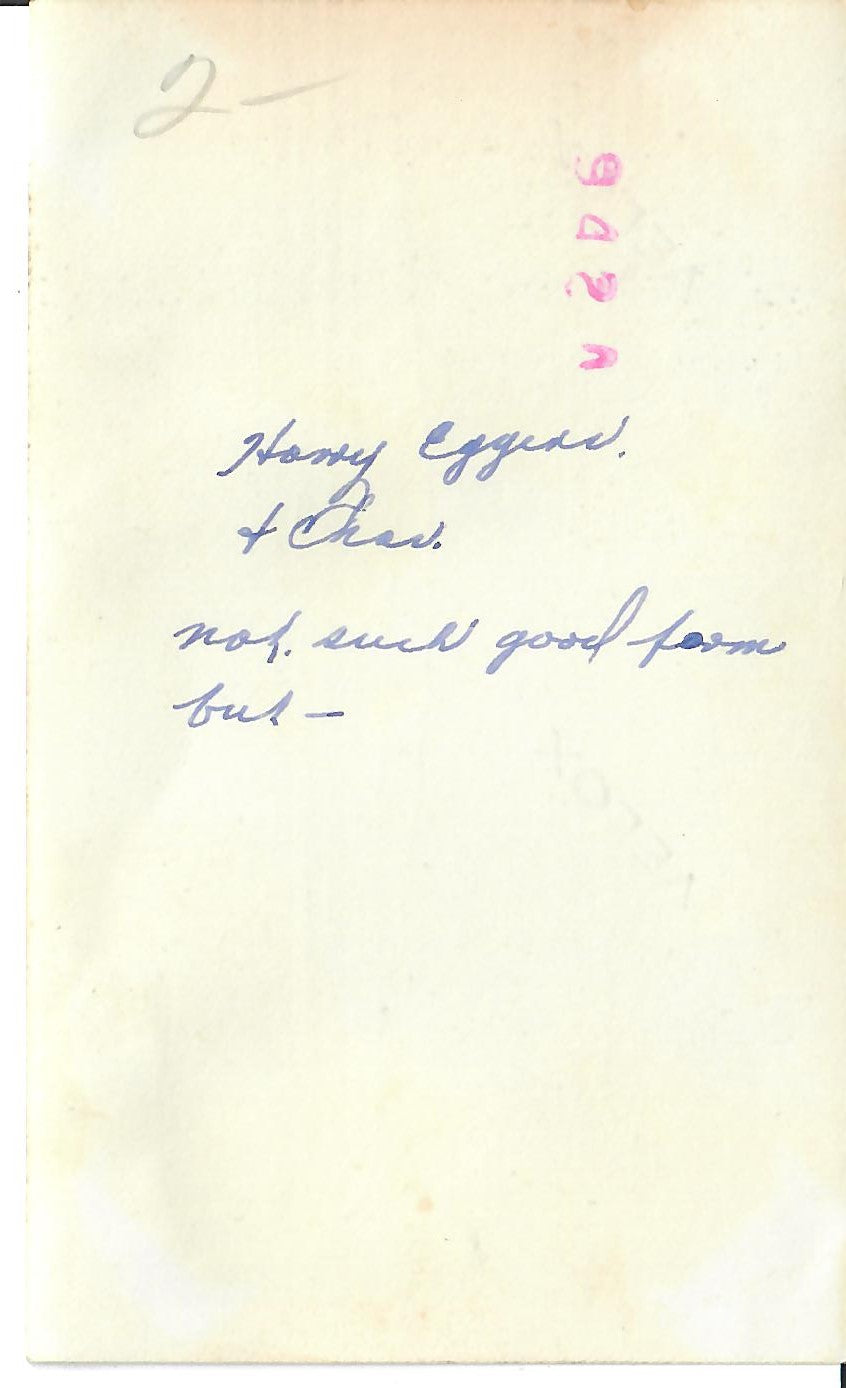 2 –
Harry Eggers.
& Chas.
not. such good form
but –